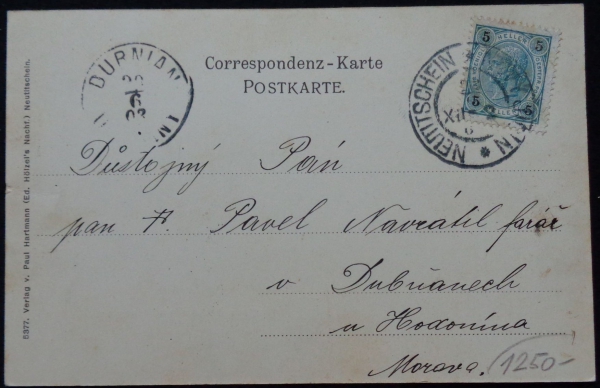 Correspondenz-Karte
POSTKARTE.
5 HELLER 5
5 5
NEUTITSCHEIN
XII
DURNIAN
03
Důstojný Pán
pan P. Pavel Navrátil farář
v Dubňanech
u Hodonína
Morava.
1250-
5977. Verlag v. Paul Hartmann (Ed. Hölzel's Nachf.) Neutitschein.